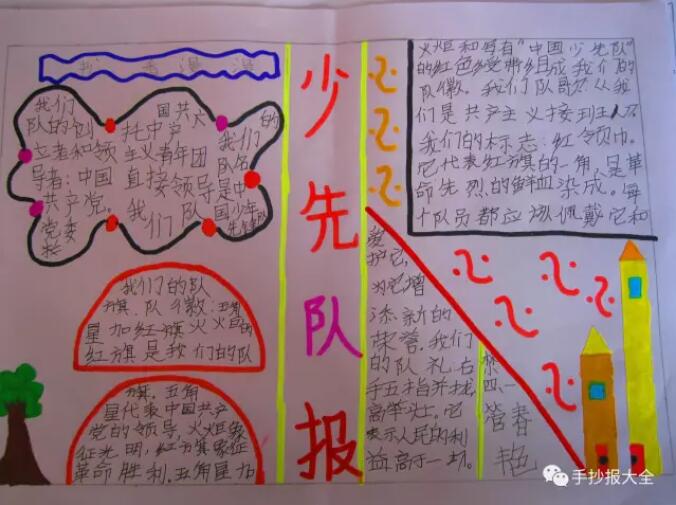 少先队报
我们
队的创
立者和领
导者：中国
共产党。
党委
托中产
主义青年团
直接领导
我们队
国共
我们的
队名
是中
国少年
先锋队
我们的队
旗、队徽：五角
星加红旗火
红旗是我们的队
旗。五角
星代表中国共产
党的领导，火炬象
征光明，红旗象征
革命胜利。五角星加
火炬和写有“中国少先队”
的红色绶带组成我们的
队徽。我们队
们是共产主义接班人
我们的标志：红领巾。
它代表红旗的一角，是革
命先烈的鲜血染成。每
个队员都应该佩戴它和
爱
护它，
为它增
添新的
荣誉。我们
的队礼：右
手五指并拢，
高举头上。它
表示人民的利
益高于一切。
四一
营春
艳
手抄报大全